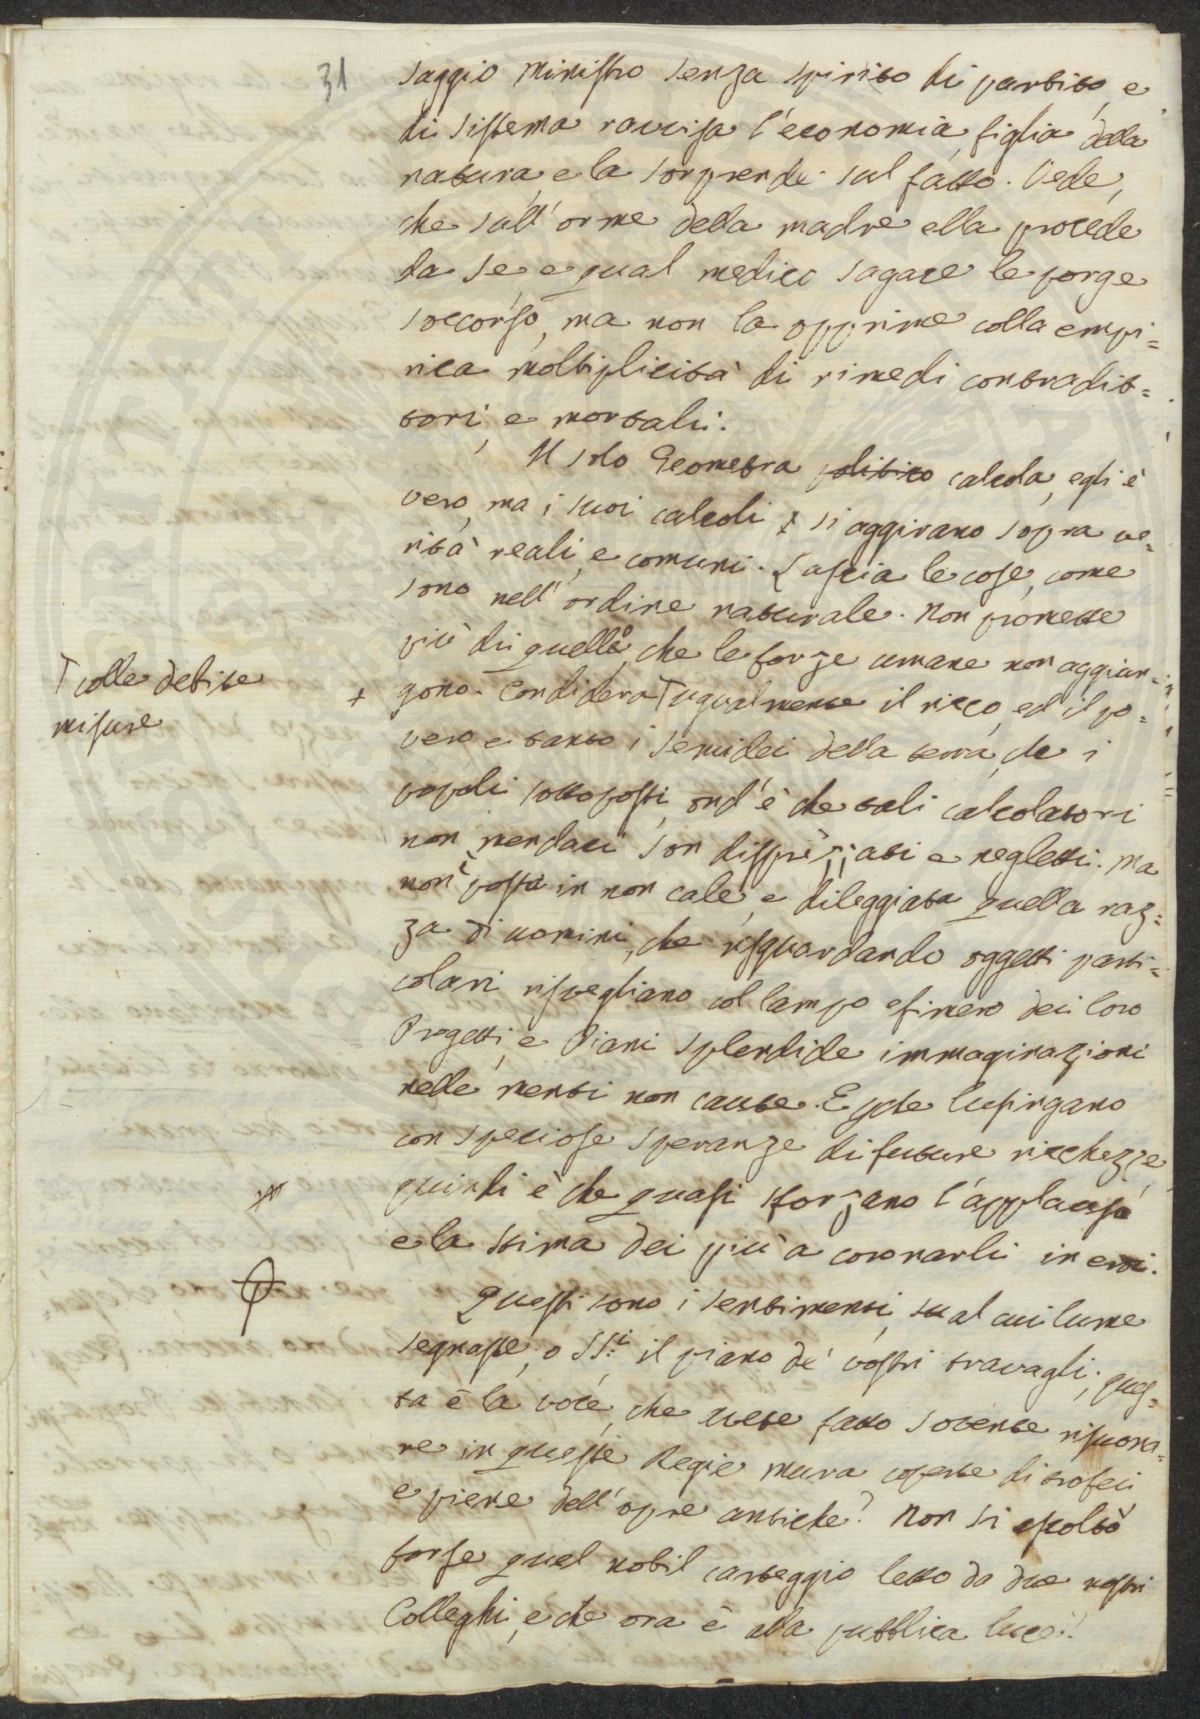 31
saggio Ministro senza spirito di partito, e
di Sistema ravvisa l'economia, figlia della
natura, e la sorprende sul fatto. Vede,
che sull'orme della madre ella procede
da se, e qual medico sagace le porge
soccorso, ma non la opprime colla empi=
rica moltiplicità di rimedi contradit=
tori, e mortali.
Il solo Geometra politico calcola, egli è
vero, ma i suoi calcoli si aggirano sopra ve=
rità reali, e comuni. Lascia le cose, come
sono nell'ordine naturale. Non promette
più di quello, che le forze umane non aggiun=
gono. Considera Γ ugualmente il ricco, ed il po=
vero e tanto i semidei della terra, che i
popoli sottoposti, ond'è che tali calcolatori
non mendaci son disprezziati e negletti. Ma
non è posta in non cale, e dileggiata quella raz=
za di uomini, che risguardando oggetti parti=
colari risvegliano col lampo efimero dei loro
Progetti, e Piani splendide immaginazioni
nelle menti non caute. E poste lusingano
con speciose speranze di future ricchezze,
quindi è che quasi sforzano l'applauso
e la stima dei più a coronarli in eroi.
Questi sono i sentimenti, su al cui lume
segnaste, o SS.i il piano de' vostri travagli; ques=
ta è la voce, che avete fatto sovente risuona=
re in queste Regie mura coperte di trofei
e piene dell'opre antiche? Non si ascoltò
forse quel nobil carteggio letto da due nostri
Colleghi, e che ora è alla pubblica luce?
Γ colle debite
misure
+